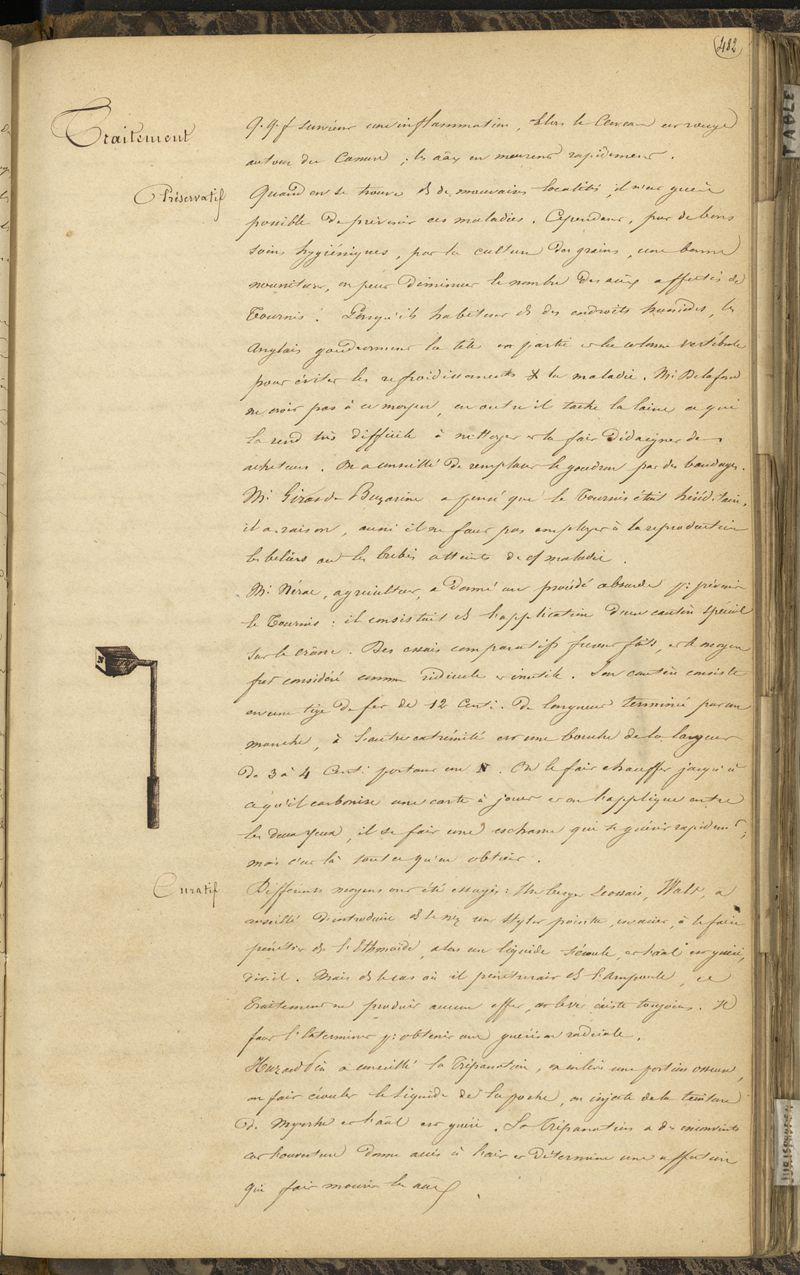 482
TABLE
Traitement
q.q.f survient une inflammation, alors le Cerveau est rouge
autour du Canure, les aãx en meurent rapidement.
Préservatif
Quand on se trouve ds de mauvaises localités, il n'est guère
possible de prévenir ces maladies. Cependant, par de bons
soins hygiéniques, par la culture des grains, une bonne
nourriture, on peut diminuer le nombre des aãx affectés de
Tournis. Lorsqu'ils habitent ds des endroits humides, les
Anglais goudronnent la tête en partie et la colonne vertébrale
pour éviter les refroidissements & la maladie. Mr Delafond
ne croit pas à ce moyen, en outre il tache la laine ce qui
la rend très difficile à nettoyer et la fait dédaigner des
acheteurs. On a conseillé de remplacer le goudron par des bandages.
Mr Girard Buzarine a pensé que le Tournis était héréditaire,
il a raison, aussi il ne faut pas employer à la reproduction
les beliers ou les brebis atteints de cf maladie.
Mr Nérac, agriculteur, a donné un procédé absurde pr prévenir
le Tournis : il consistait ds l'application d'un cautère spécial
sur le crâne. Des essais comparatifs furent faits, et le moyen
fut considéré comme ridicule et inutile. Son cautère consiste
en une tige de fer de 12 Centi. de longueur terminée par un
manche, à l'autre extrémité est une bouche de la largeur
de 3 à 4 Centi. portant un N. On le fait chauffer jusqu'à
ce qu'il carbonise une carte à jouer et on l'applique entre
les deux yeux, il se fait une eschare qui se guérit rapidemt,
mais c'est là tout ce qu'on obtient.
Curatif
Différents moyens ont été essayés : Un berger Ecossais, Walt, a
conseillé d'introduire ds le nez un stylet pointu, en acier, à le faire
pénétrer ds l'Ethmoïde, alors un liquide s'écoule, et l'aãl est guéri,
dit-il. Mais ds le cas où il pénétrerait ds l'Ampoule, ce
traitement ne produit aucun effet, le ver existe toujours. Il
faut l'exterminer pr obtenir une guérison radicale.
Huzard fils a conseillé la Trépanation, on enlève une portion osseuse,
on fait écouler le liquide de la poche, on injecte de la teinture
de Myrrhe et l'aãl est guéri. La Trépanation a des inconvénients
car l'ouverture donne accès à l'air et détermine une affection
qui fait mourir les aãx
JURISPRUDENCE